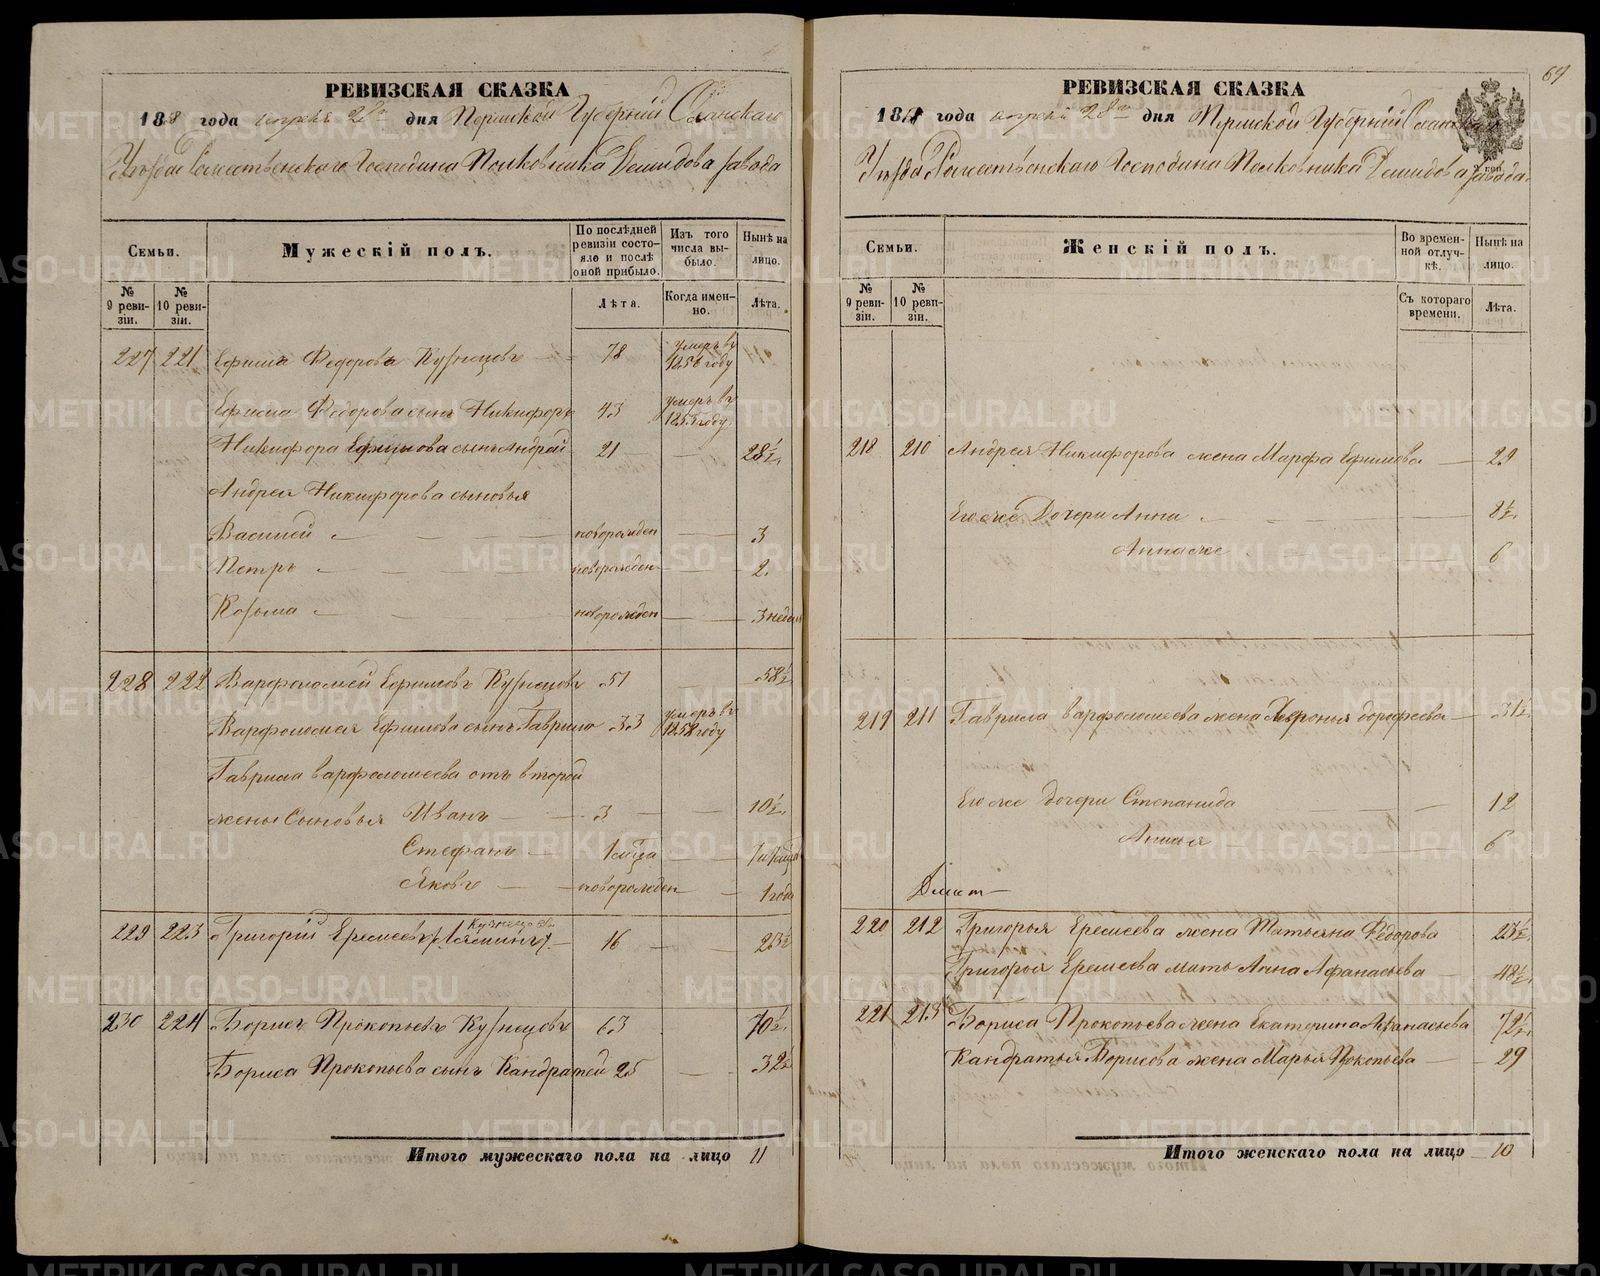 РЕВИЗСКАЯ СКАЗКА
1858 года апреля 28го дня Пермской Губернии Осинскаго
Уезда Рожественскаго Господина Полковника Демидова завода
Семьи.
Мужескій полъ.
По послѣдней ревизіи состояло и послѣ оной прибыло.
Изъ того числа выбыло.
Нынѣ на лицо.
№ 9 ревизіи.
№ 10 ревизіи.
Лѣта.
Когда именно.
Лѣта.
227 221 Ефимъ Федоровъ Кузнецовъ 78 умеръ въ 1856 году
Ефима Федорова сынъ Никифоръ 43 умеръ въ 1855 году
Никифора Ефимова сынъ Андрей 21 28½
Андрея Никифорова сыновья
Василей новорожден 3
Петръ новорожден 2
Козьма новорожден 3 недели
228 222 Варфоломей Ефимовъ Кузнецовъ 51 58½
Варфоломея Ефимова сынъ Гаврило 33 умеръ въ 1858 году
Гаврила варфоломеева отъ второй
жены Сыновья Иванъ 3 10½
Стефанъ 1 мѣсца
Яковъ новорожден 1 года
229 223 Григорій Еремеевъ Кузнецовъ 16 23½
230 224 Борисъ Прокопьевъ Кузнецовъ 63 70½
Бориса Прокопьева сынъ Кандратей 25 32½
Итого мужескаго пола на лицо 11
69
РЕВИЗСКАЯ СКАЗКА
1858 года апреля 28го дня Пермской Губерніи Осинскаго
Уезда Рожественскаго Господина Полковника Демидова завода
Семьи.
Женскій полъ.
Во временной отлучкѣ.
Нынѣ на лицо.
№ 9 ревизіи.
№ 10 ревизіи.
Съ котораго времени.
Лѣта.
218 210 Андрея Никифорова жена Марфа Ефимова 29
Его же Дочери Анна 8½
Анна же 6
219 211 Гаврила варфоломеева жена Хавронья дорофеева 31½
Его же дочери Степанида 12
Анисья 6
220 212 Григорья Еремеева жена Татьяна Федорова 23½
Григорья Еремеева мать Анна Афанасьева 48½
221 213 Бориса Прокопьева жена Екатерина Афанасьева 72½
Кандратья Борисова жена Марья Прокопьева 29
Итого женскаго пола на лицо 10
METRIKI.GASO-URAL.RU